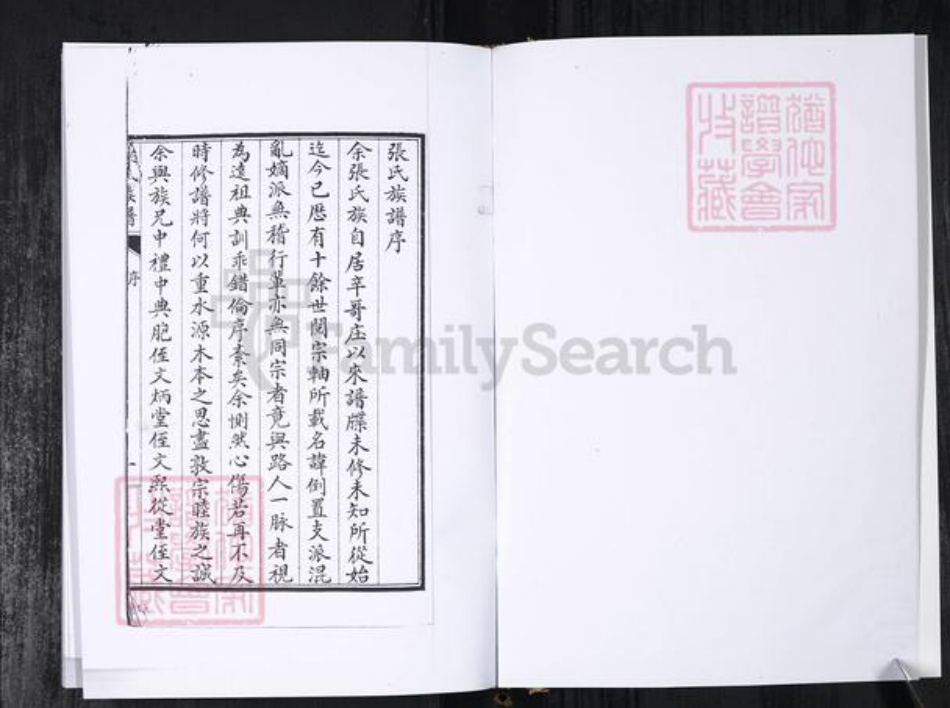 張氏族譜序
余張氏族自居辛哥庄以來譜牒未修未知所從始
迄今已歷有十餘世閱宗軸所載名諱倒置支派混
亂嫡派無稽行輩亦無同宗者竟與路人一脉者視
為遠祖典訓乖錯倫序紊矣余惻然心傷若再不及
時修譜將何以重水源木本之思盡敦宗睦族之誠
余與族兄中禮中典胞侄文炳堂侄文熙從堂侄文
氏族譜
序
猶他家
譜學會
特藏
FamilySearch
猶他家
譜學會
特藏